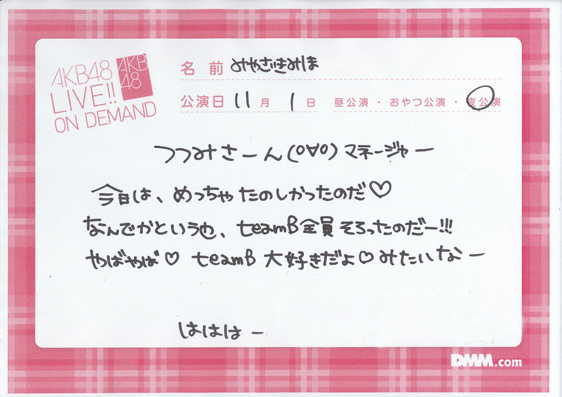 AKB48
LIVE!!
ON DEMAND
AKB
48
名前 みやざきみほ
公演日 11月 1日 昼公演・おやつ公演・夜公演
つつみさーん(o∀o)マネージャー
今日は、めっちゃたのしかったのだ♡
なんでかというと、teamB全員そろったのだー!!!
やばやば♡ teamB 大好きだよ♡みたいなー
はははー
DMM.com